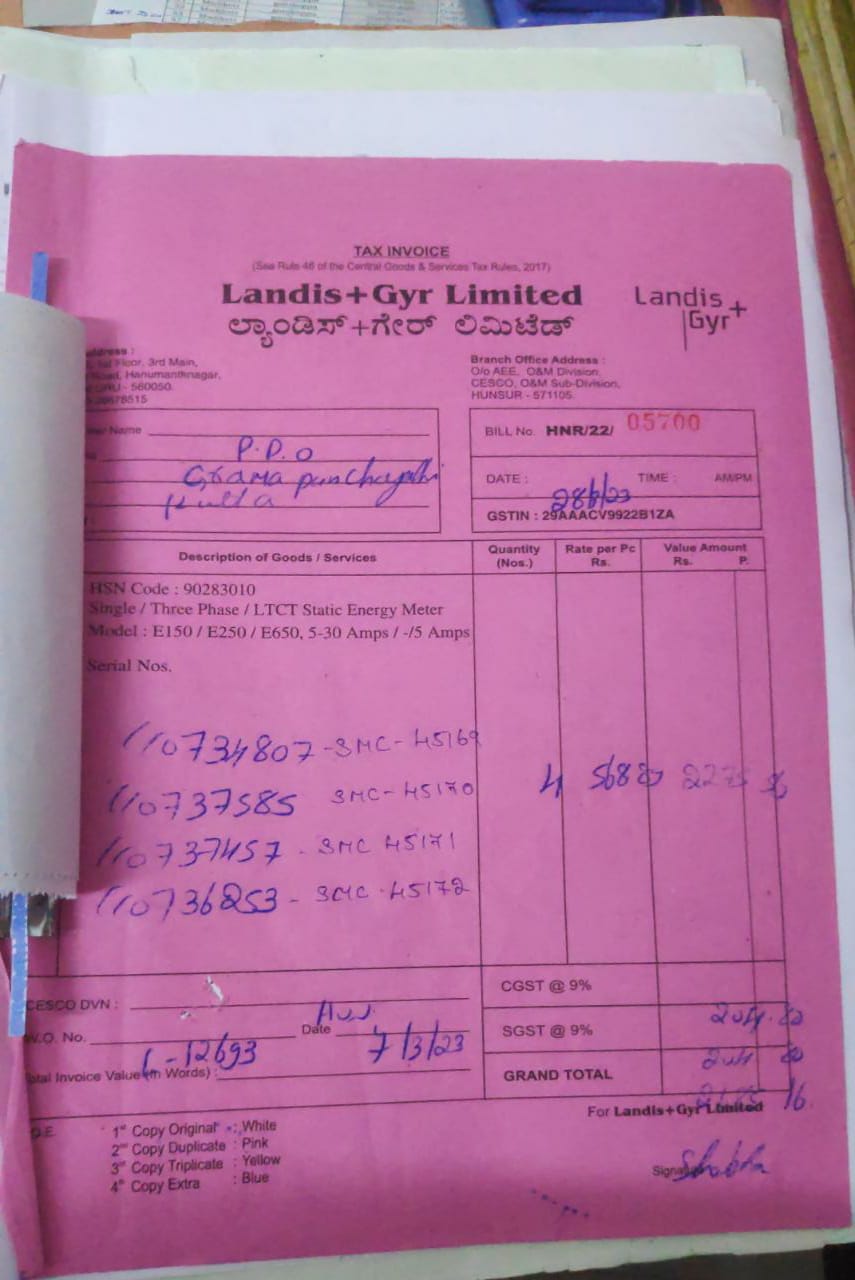 TAX INVOICE
(See Rule 46 of the Central Goods & Services Tax Rules, 2017)
Landis+Gyr Limited
ಲ್ಯಾಂಡಿಸ್+ಗೇರ್ ಲಿಮಿಟೆಡ್
Landis
Gyr+
Floor, 3rd Main,
Hanumanthnagar,
- 560050.
Branch Office Address :
O/o AEE, O&M Division,
CESCO, O&M Sub-Division,
HUNSUR - 571105.
Name
P.D.O
Grama panchayathi
Kutta
BILL No. HNR/22/ 05700
DATE : TIME : AM/PM
GSTIN : 29AAACV9922B1ZA
Description of Goods / Services
Quantity (Nos.)
Rate per Pc Rs.
Value Amount Rs. P.
HSN Code : 90283010
Single / Three Phase / LTCT Static Energy Meter
Model : E150 / E250 / E650, 5-30 Amps / -/5 Amps
Serial Nos.
110734807 - SMC - 45169
110737585 SMC - 45170
4
110737457 - SMC 45171
110736253 - SMC - 45172
CESCO DVN :
W.O. No. Date
L-12693 7/3/23
Total Invoice Value (In Words) :
CGST @ 9%
SGST @ 9%
204.80
GRAND TOTAL
204 80
16
For Landis+Gyr Limited
1st Copy Original : White
2nd Copy Duplicate : Pink
3rd Copy Triplicate : Yellow
4th Copy Extra : Blue
Shobha